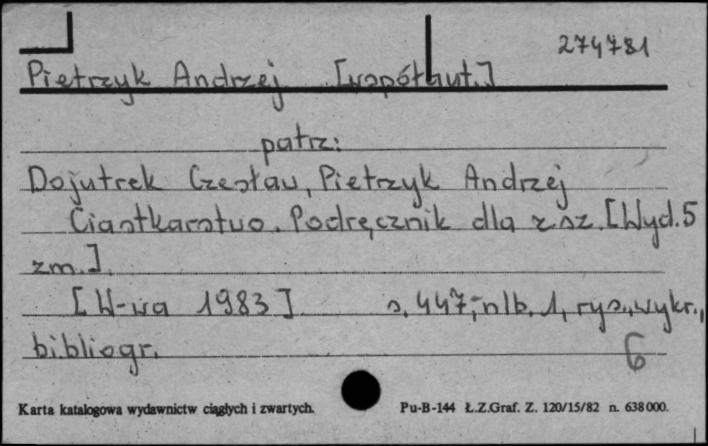 274781
Pietrzyk Andrzej [współaut.]
patrz:
Dojutrek Czesław, Pietrzyk Andrzej
Ciastkarstwo. Podręcznik dla zsz. [Wyd. 5
zm.].
[W-wa 1983] s. 447, nlb. 1, rys., wykr.,
bibliogr.
6
Karta katalogowa wydawnictw ciągłych i zwartych. Pu-B-144 Ł.Z.Graf. Z. 120/15/82 n. 638000.